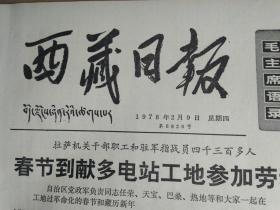 西藏日报
བོད་ལྗོངས་ཉིན་རེའི་ཚགས་པར
1978年2月9日 星期四
毛主席语录
拉萨机关干部职工和驻军指战员四千三百多人
春节到献多电站工地参加劳
自治区党政军负责同志任荣、天宝、巴桑、热地等和大家一起在
工地过革命化的春节和藏历新年